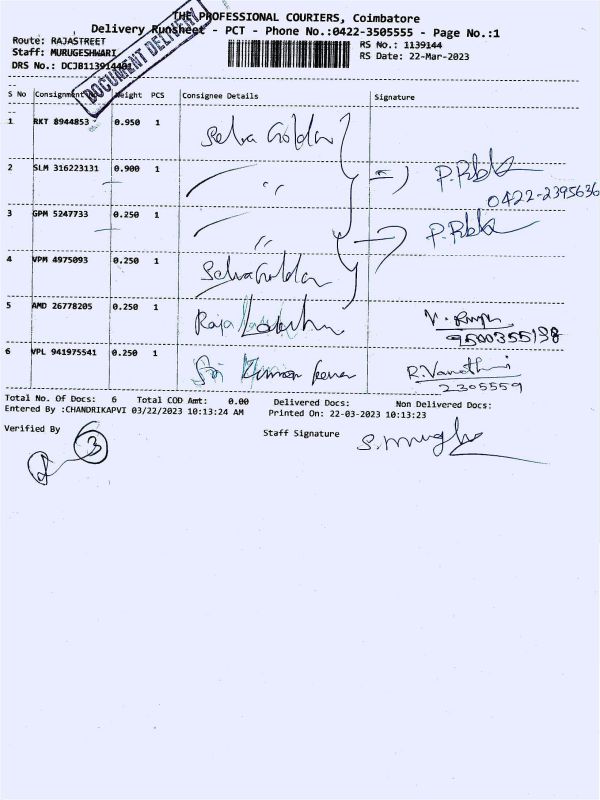 THE PROFESSIONAL COURIERS, Coimbatore
Delivery Runsheet - PCT - Phone No.:0422-3505555 - Page No.:1
Route: RAJASTREET
RS No.: 1139144
Staff: MURUGESHWARI
RS Date: 22-Mar-2023
DRS No.:
DOCUMENT DELIVERY
S No Consignment Weight PCS Consignee Details Signature
1 RKT 8944853 0.950 1 Selva Golden
2 SLM 316223131 0.900 1 " =) P.
0422-2395636
3 GPM 5247733 0.250 1 " P.
4 VPM 4975093 0.250 1 Selva Golden
5 AMD 26778205 0.250 1 Raja
9500355198
6 VPL 941975541 0.250 1 Sri Kumaran R.Vanathi
2305559
Total No. Of Docs: 6 Total COD Amt: 0.00 Delivered Docs: Non Delivered Docs:
Entered By :CHANDRIKAPVI 03/22/2023 10:13:24 AM Printed On: 22-03-2023 10:13:23
Verified By Staff Signature
3